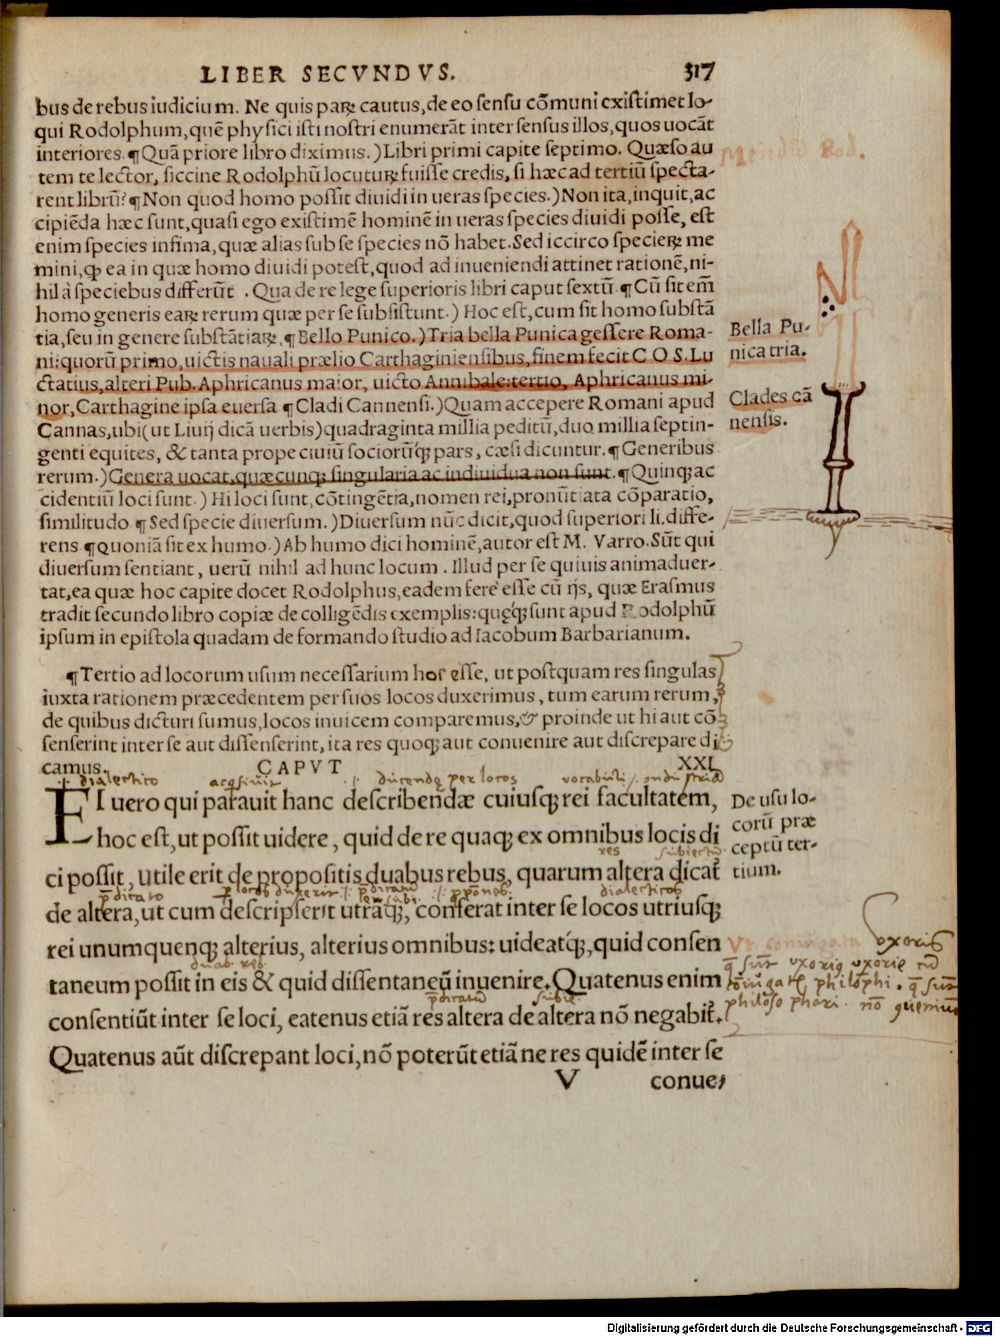 LIBER SECVNDVS. 317
bus de rebus iudicium. Ne quis paꝝ cautus, de eo sensu cōmuni existimet lo-
qui Rodolphum, quē physici isti nostri enumerāt inter sensus illos, quos uocāt
interiores. ¶Quā priore libro diximus.) Libri primi capite septimo. Quæso au
tem te lector, siccine Rodolphū locutuꝝ fuisse credis, si hæc ad tertiū specta-
rent librū? ¶Non quod homo possit diuidi in ueras species.) Non ita, inquit, ac
cipiēda hæc sunt, quasi ego existimē hominē in ueras species diuidi posse, est
enim species infima, quæ alias sub se species nō habet. Sed iccirco specieꝝ me
mini, ꝙ ea in quæ homo diuidi potest, quod ad inueniendi attinet rationē, ni-
hil à speciebus differūt. Qua de re lege superioris libri caput sextū. ¶Cū sit em̄
homo generis eaꝝ rerum quæ per se subsistunt.) Hoc est, cum sit homo substā
tia, seu in genere substātiaꝝ, ¶Bello Punico.) Tria bella Punica gessere Roma-
ni: quorū primo, uictis nauali prælio Carthaginiensibus, finem fecit C O S. Lu
ctatius, alteri Pub. Aphricanus maior, uicto Annibale: tertio, Aphricanus mi-
nor, Carthagine ipsa euersa ¶Cladi Cannensi.) Quam accepere Romani apud
Cannas, ubi (ut Liuij dicā uerbis) quadraginta millia peditū, duo millia septin-
genti equites, & tanta prope ciuiū sociorūꝗ́ pars, cæsi dicuntur. ¶Generibus
rerum.) Genera uocat, quæcunꝗ singularia ac indiuidua non sunt. ¶Quinꝗ ac
cidentiū loci sunt.) Hi loci sunt, cōtingētia, nomen rei, pronūtiata cōparatio,
similitudo ¶Sed specie diuersum.) Diuersum nūc dicit, quod superiori li. diffe-
rens ¶Quoniā sit ex humo.) Ab humo dici hominē, autor est M. Varro. Sūt qui
diuersum sentiant, uerū nihil ad hunc locum. Illud per se quiuis animaduer-
tat, ea quæ hoc capite docet Rodolphus, eadem ferè esse cū ijs, quæ Erasmus
tradit secundo libro copiæ de colligēdis exemplis: quęꝗ́ sunt apud Rodolphū
ipsum in epistola quadam de formando studio ad Iacobum Barbarianum.
Bella Pu-
nica tria.
Clades cā
nensis.
¶Tertio ad locorum usum necessarium hoc esse, ut postquam res singulas
iuxta rationem præcedentem per suos locos duxerimus, tum earum rerum,
de quibus dicturi sumus, locos inuicem comparemus, & proinde ut hi aut cō
senserint inter se aut dissenserint, ita res quoꝗ aut conuenire aut discrepare di
camus. CAPVT XXI.
EI uero qui parauit hanc describendæ cuiusꝗ rei facultatem,
hoc est, ut possit uidere, quid de re quaꝗ ex omnibus locis di
ci possit, utile erit de propositis duabus rebus, quarum altera dicat̄
de altera, ut cum descripserit utrāꝗ, conferat inter se locos utriusꝗ
rei unumquenꝗ alterius, alterius omnibus: uideatꝗ́, quid consen
taneum possit in eis & quid dissentaneū inuenire. Quatenus enim
consentiūt inter se loci, eatenus etiā res altera de altera nō negabit̄.
Quatenus aūt discrepant loci, nō poterūt etiā ne res quidē inter se
De usu lo-
corū præ
ceptū ter-
tium.
V conue-
Digitalisierung gefördert durch die Deutsche Forschungsgemeinschaft - DFG